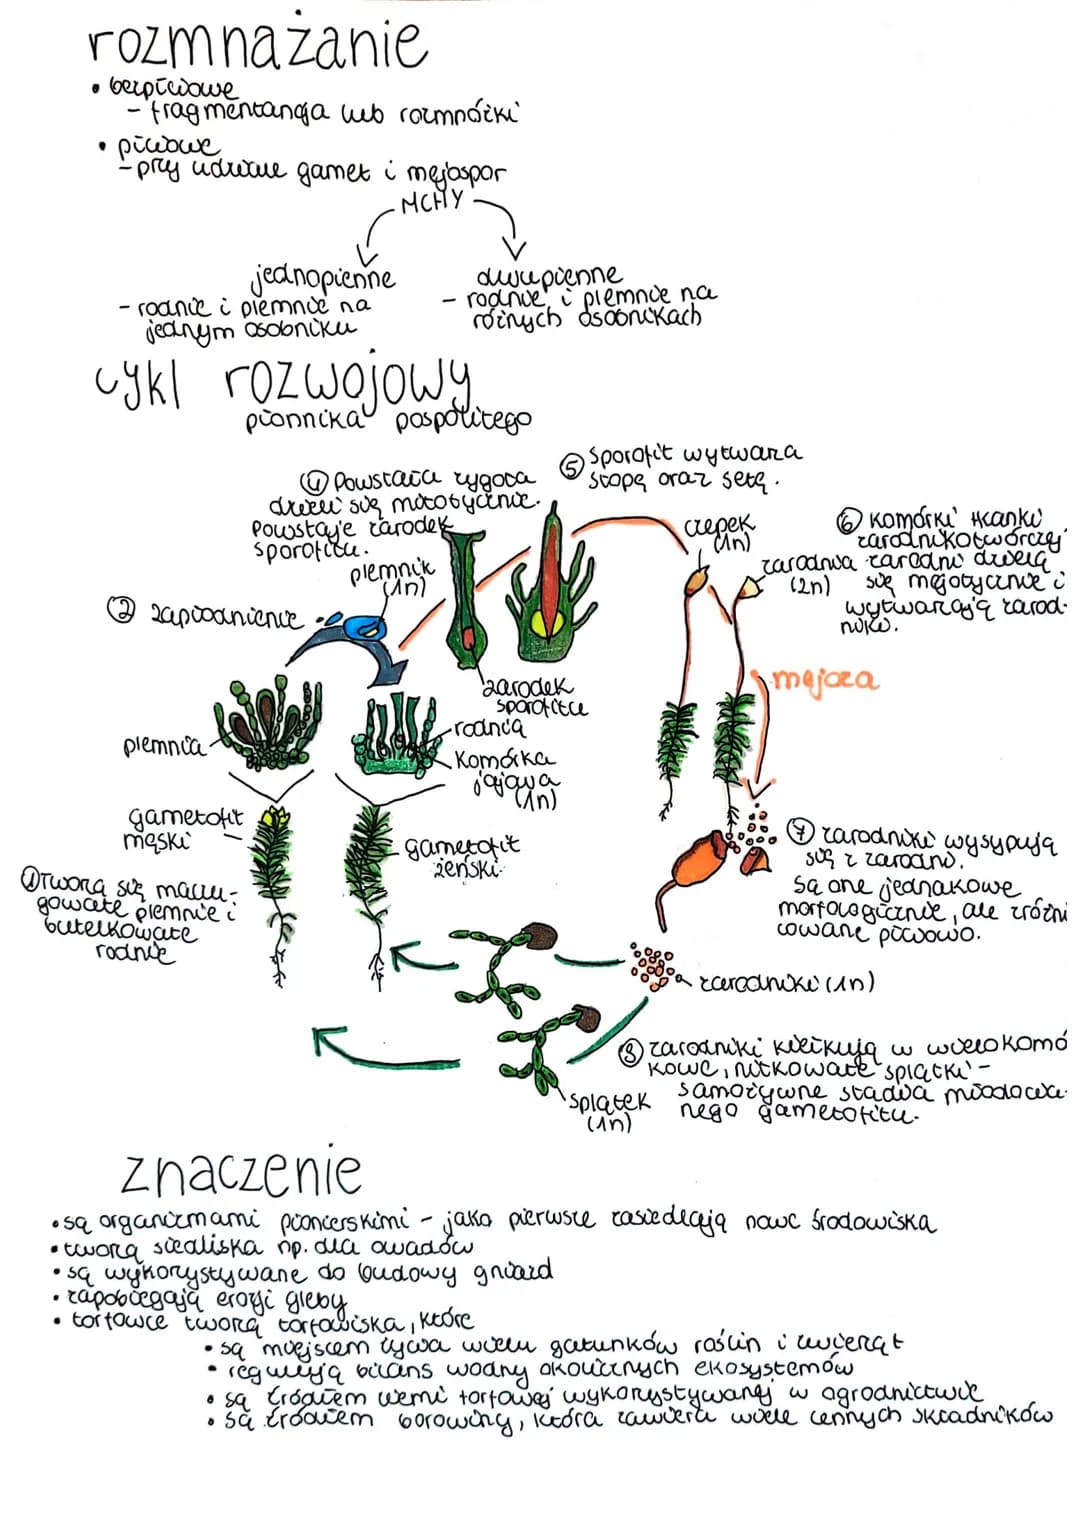 rozmnażanie
• bezpłciowe
- fragmentancja lub rozmnóżki
• płciowe
- przy udziale gamet i mejospor
MCHY
jednopienne
- rodnie i plemnie na
jednym osobniku
dwupienne
- rodnie i plemnie na
różnych osobnikach
cykl rozwojowy
płonnika pospolitego
④ Powstała zygota
dzieli się mitotycznie.
Powstaje zarodek
sporofitu.
⑤ Sporofit wytwarza
stopę oraz setę.
⑥ Komórki tkanki
zarodnikotwórczej
zarodni dzielą
się mejotycznie i
wytwarzają zarod-
niki.
czepek
(1n)
zarodnia
(2n)
plemnik
(1n)
② zapłodnienie
zarodek
sporofitu
mejoza
rodnia
plemnia
Komórka
jajowa
(1n)
gametofit
męski
gametofit
żeński
① Tworzą się maczu-
gowate plemnie i
butelkowate
rodnie
⑦ zarodniki wysypują
się z zarodni.
Są one jednakowe
morfologicznie, ale zróżni
cowane płciowo.
zarodniki (1n)
⑧ zarodniki kiełkują w wielokomó
kowe, nitkowate splątki -
samożywne stadia młodocia-
nego gametofitu.
splątek
(1n)
znaczenie
• są organizmami pionierskimi - jako pierwsze zasiedlają nowe środowiska
• tworzą siedliska np. dla owadów
• są wykorzystywane do budowy gniazd
• zapobiegają erozji gleby
• torfowce tworzą torfowiska, które
• są miejscem życia wielu gatunków roślin i zwierząt
• regulują bilans wodny okolicznych ekosystemów
• są źródłem ziemi torfowej wykorzystywanej w ogrodnictwie
• są źródłem borowiny, która zawiera wiele cennych składników